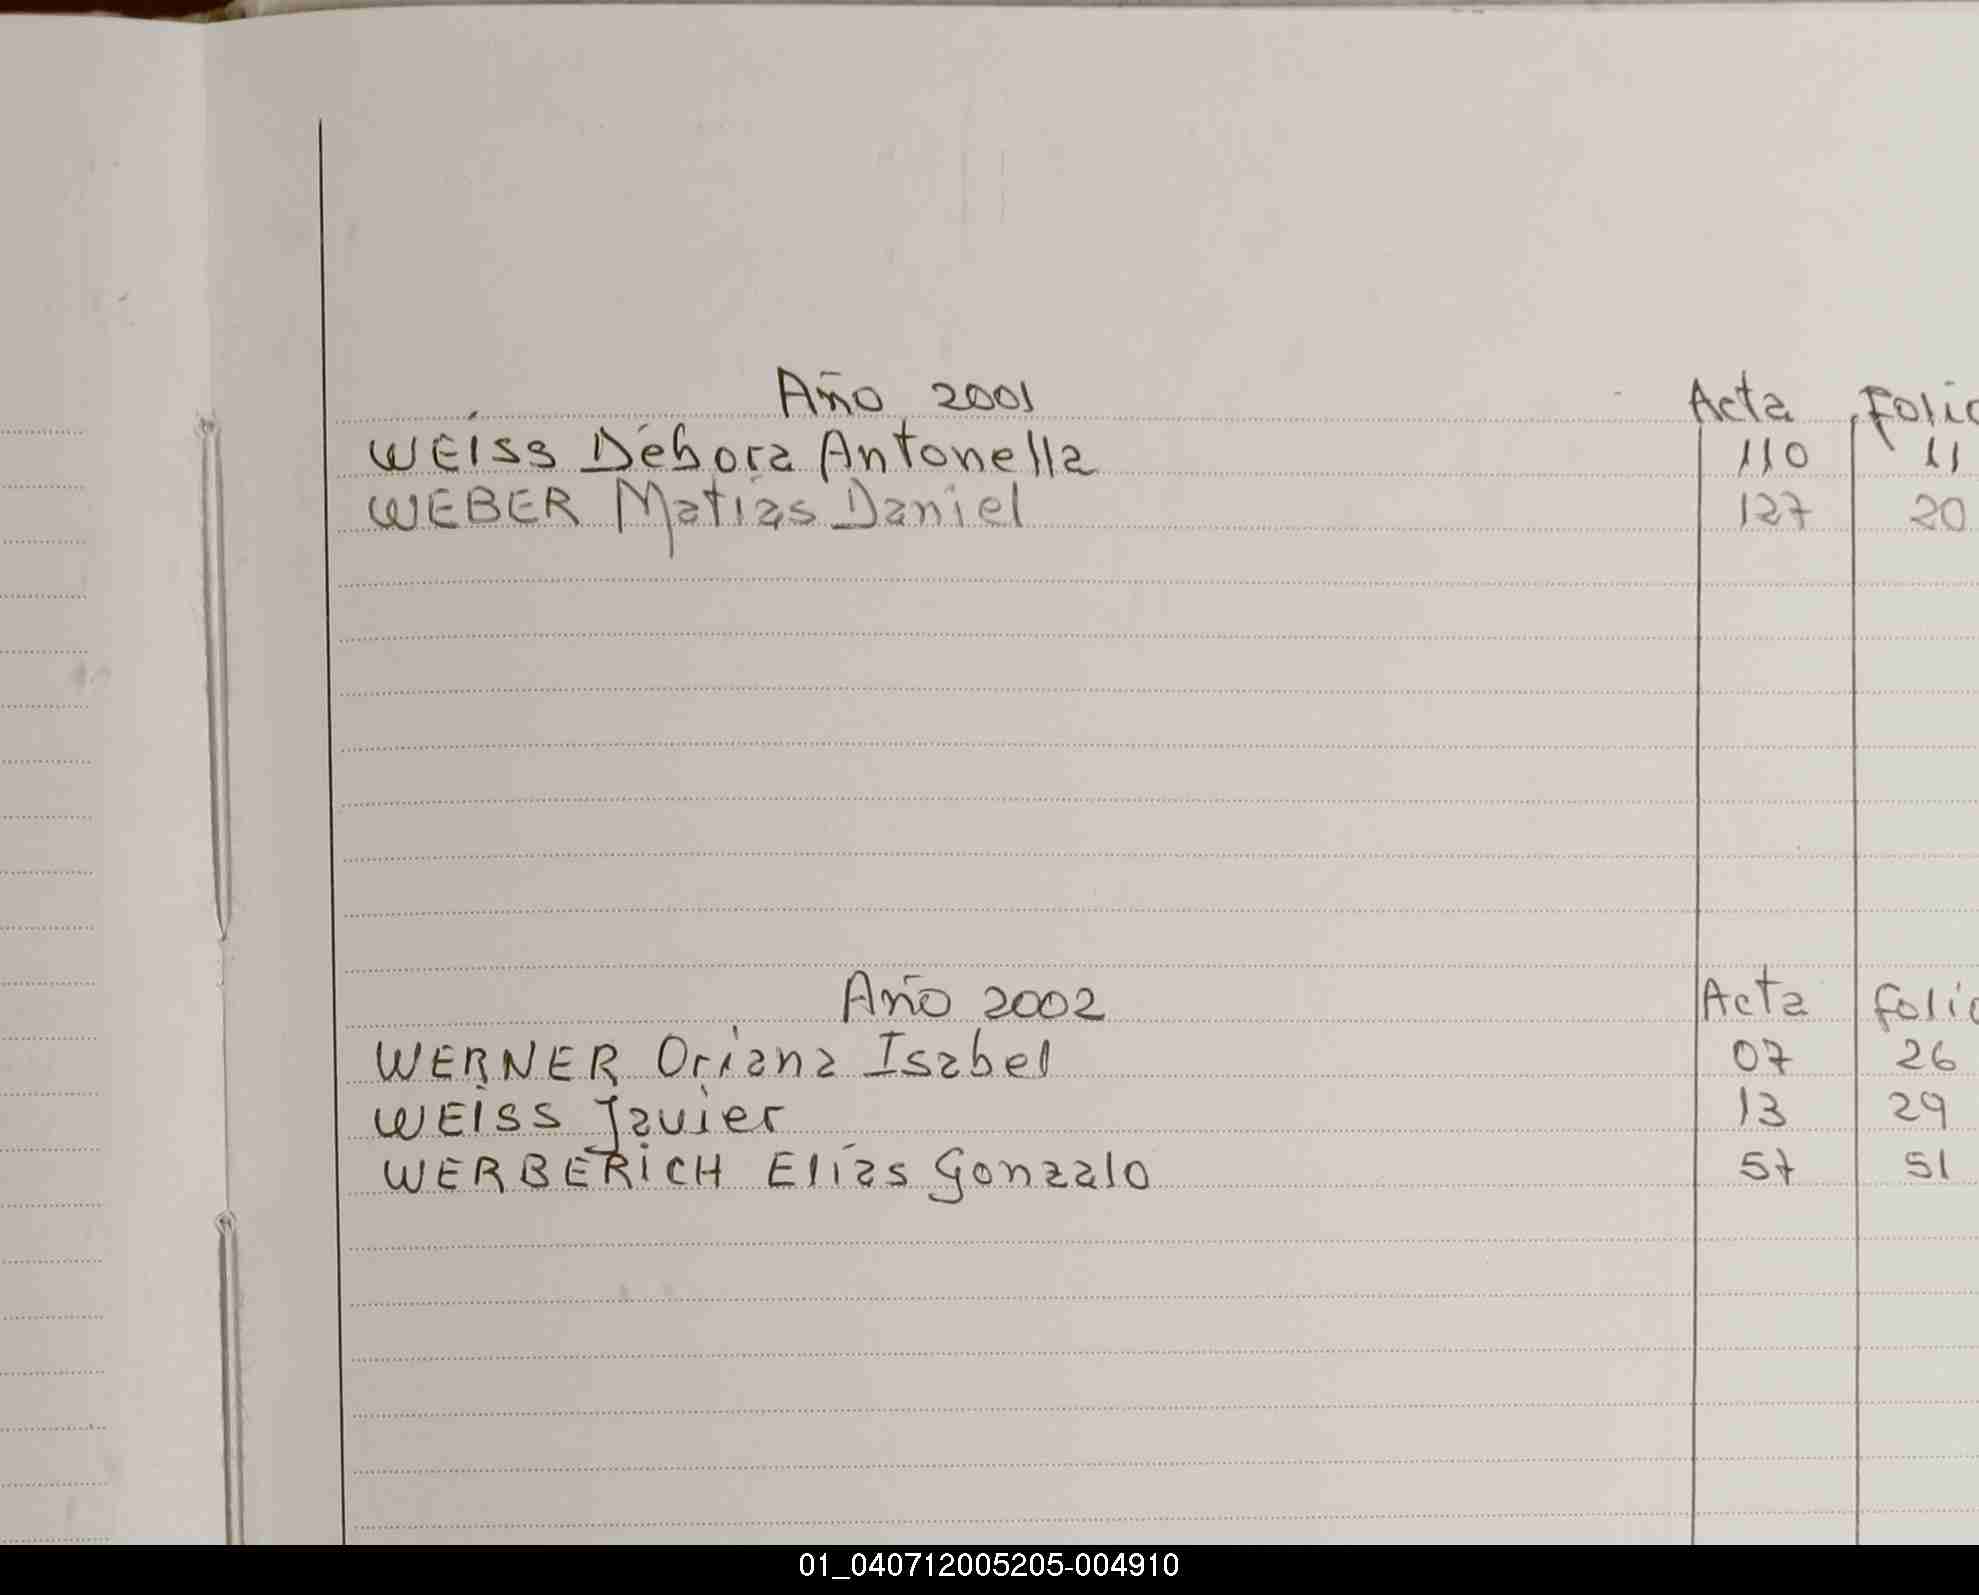 Año 2001 Acta Folio
WEISS Débora Antonella 110 11
WEBER Matías Daniel 127 20
Año 2002 Acta Folio
WERNER Oriana Isabel 07 26
WEISS Javier 13 29
WERBERICH Elías Gonzalo 57 51
01_040712005205-004910